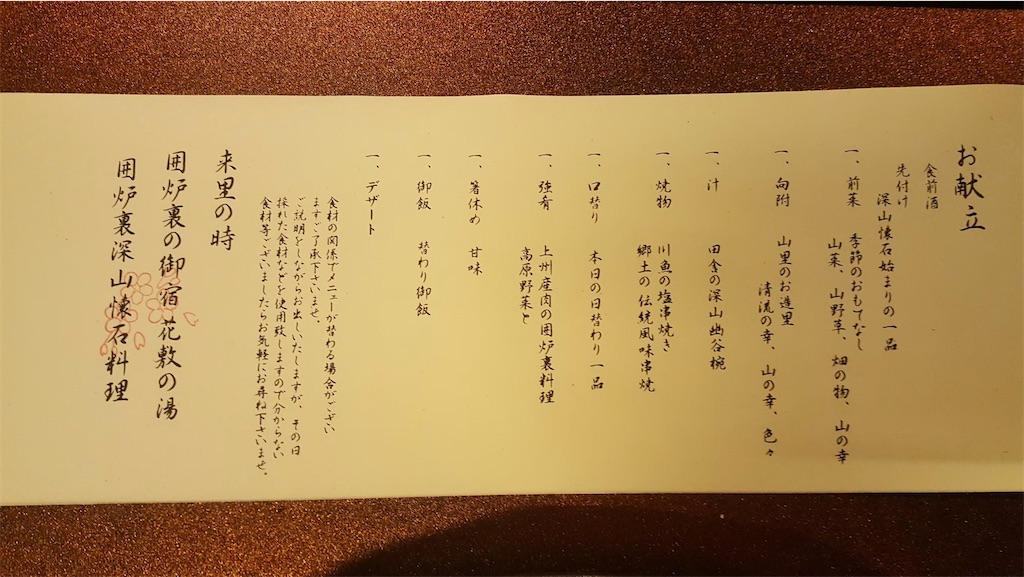 お献立
食前酒
先付け
深山懐石始まりの一品
一、前菜 季節のおもてなし
山菜、山野草、畑の物、山の幸
一、向附 山里のお造里
清流の幸、山の幸、色々
一、汁 田舎の深山幽谷椀
一、焼物 川魚の塩串焼き
郷土の伝統風味串焼
一、口替り 本日の日替わり一品
一、強肴 上州産肉の囲炉裏料理
高原野菜と
一、箸休め 甘味
一、御飯 替わり御飯
一、デザート
食材の関係でメニューが替わる場合がござい
ますご了承下さいませ。
ご説明をしながらお出しいたしますが、その日
採れた食材などを使用致しますので分からない
食材等ございましたらお気軽にお尋ね下さいませ。
来里の時
囲炉裏の御宿花敷の湯
囲炉裏深山懐石料理